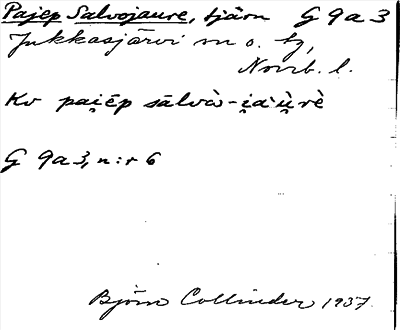 Pajep Salvojaure, tjärn G 9 a 3
Jukkasjärvi sn o. tg,
Norrb. l.
Kv pai̯ēp sālvὰ-i̯a'ù̯rè
G 9a3, n:r 6
Björn Collinder 1937.